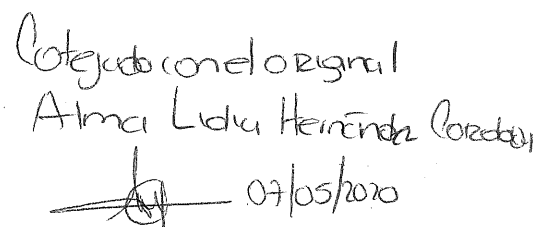 Cotejado con el original
Alma Lidia Hernández Cordova
07/05/2020